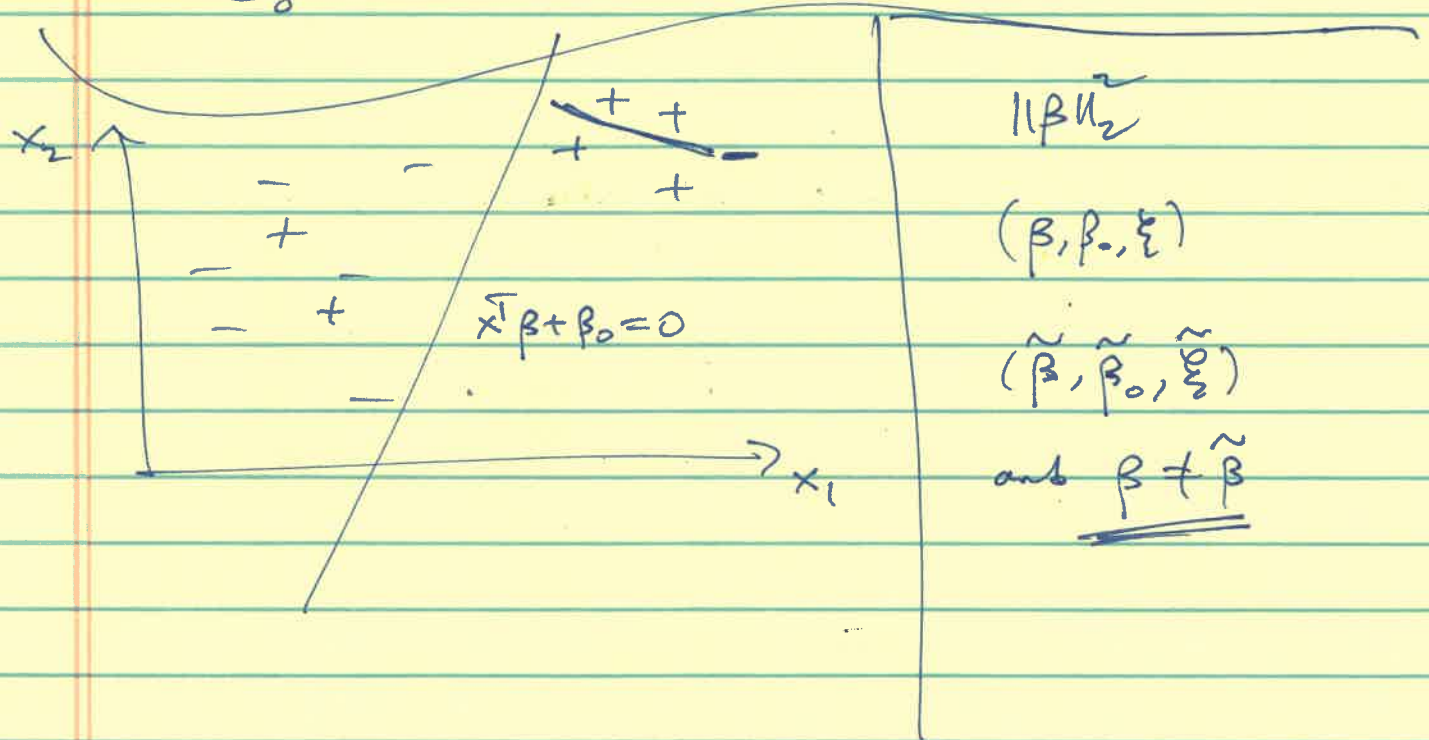 x₂
- -
+ +
+ -
+
+
- -
- +
-
xᵀβ+β₀=0
x₁
||β||₂²
(β, β₀, ξ)
(β̃, β̃₀, ξ̃)
and β ≠ β̃